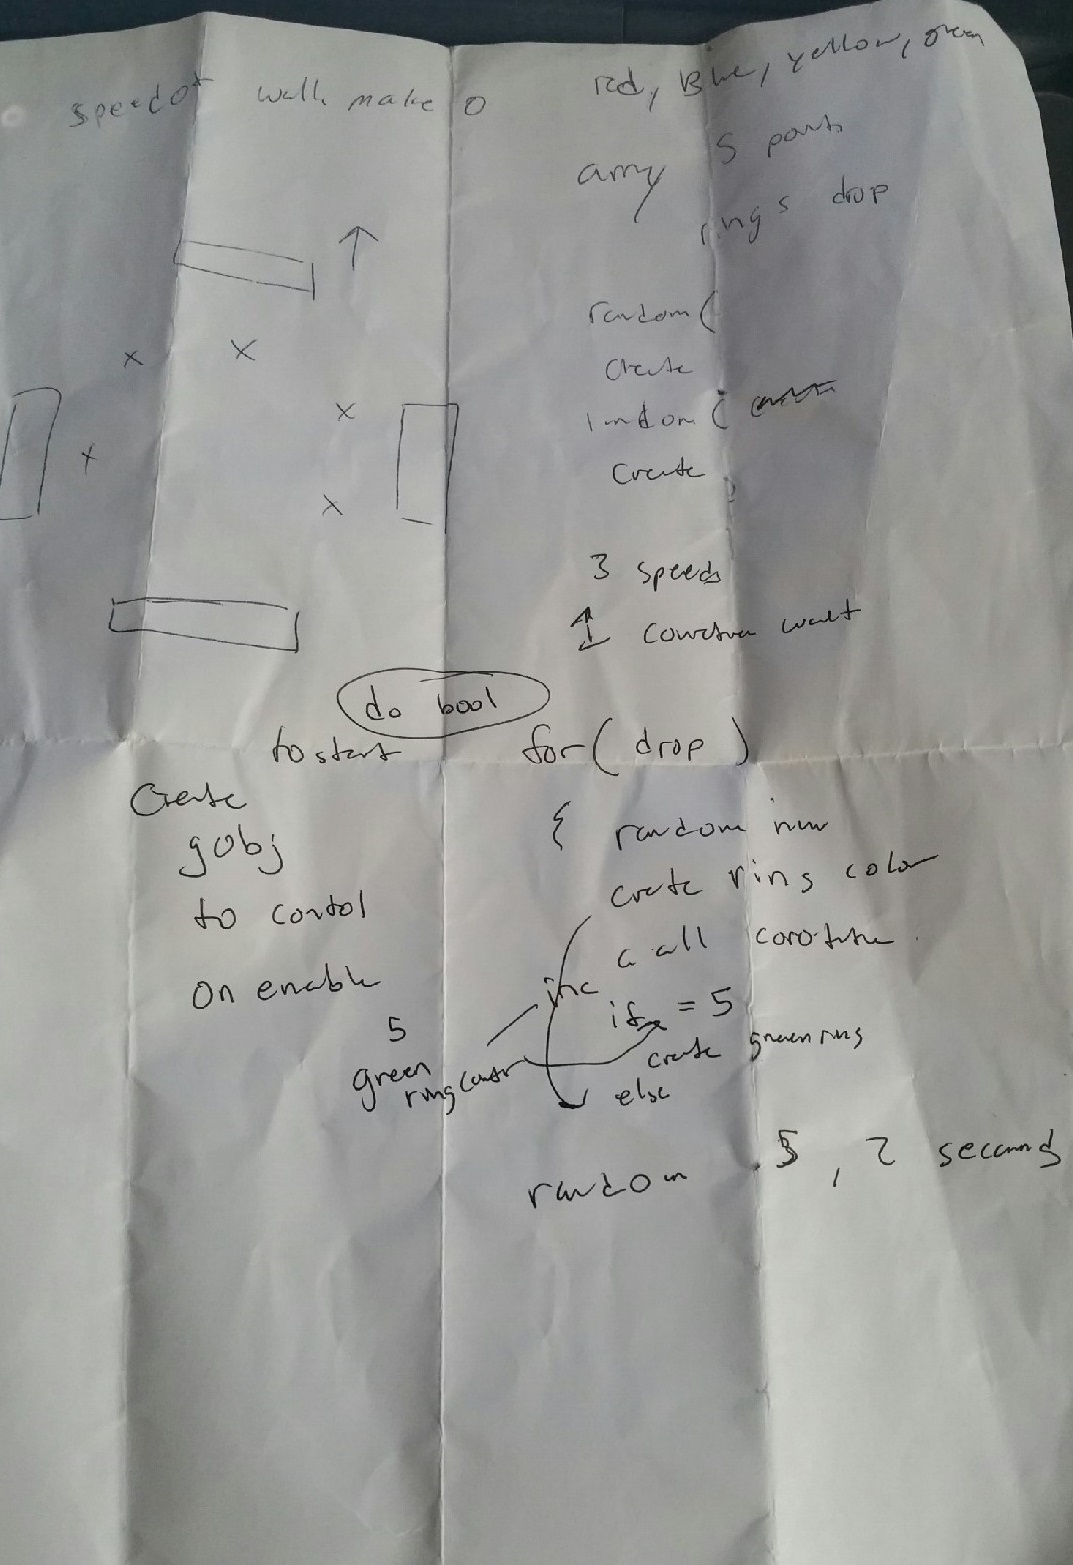 speed of walls make 0
red, Blue, yellow, green
array 5 parts
rings drop
random (
Create
random (
Create
3 speeds
wait
do bool
to start
for ( drop )
Create
gobj
to contol
On enable
{ random num
create ring color
call coroutine
inc
if = 5
create green ring
else
5
green
ring
random .5 , 2 second